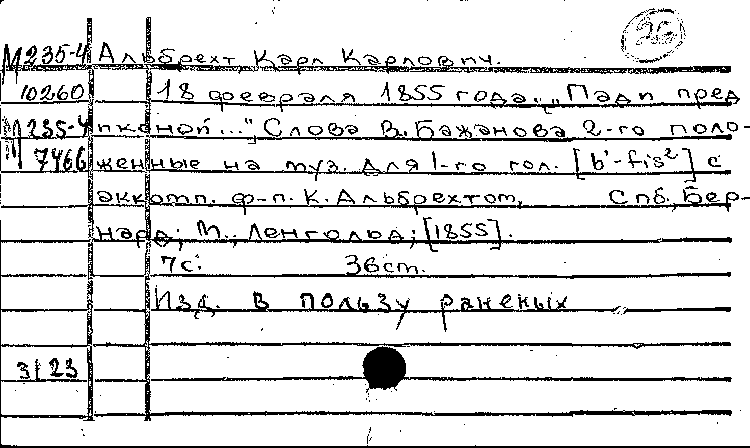 26
М 235-4 Альбрехт, Карл Карлович.
10260 18 февраля 1855 года. „Пади пред
М 235-4 иконой...", Слова В. Бажанова 2-го поло-
7466 женные на муз. для 1-го гол. [b'-fis²] с
аккомп. ф-п. К. Альбрехтом, Спб., Бер-
нард; М., Ленгольд; [1855].
7с. 36ст.
Изд. в пользу раненых
3/23